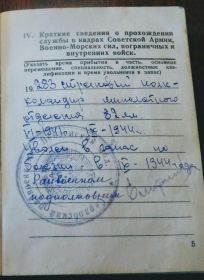 IV. Краткие сведения о прохождении
службы в кадрах Советской Армии,
Военно-Морских сил, пограничных и
внутренних войск.
(Указать время прибытия в часть, основные
перемещения, специальность, должностная квали-
фикация и время увольнения в запас)
19 283 стрелковый полк-
командир минометного
отделения 82 мм
1944г.
Уволен в запас по
1944 года
Райвоенком
подполковник
5